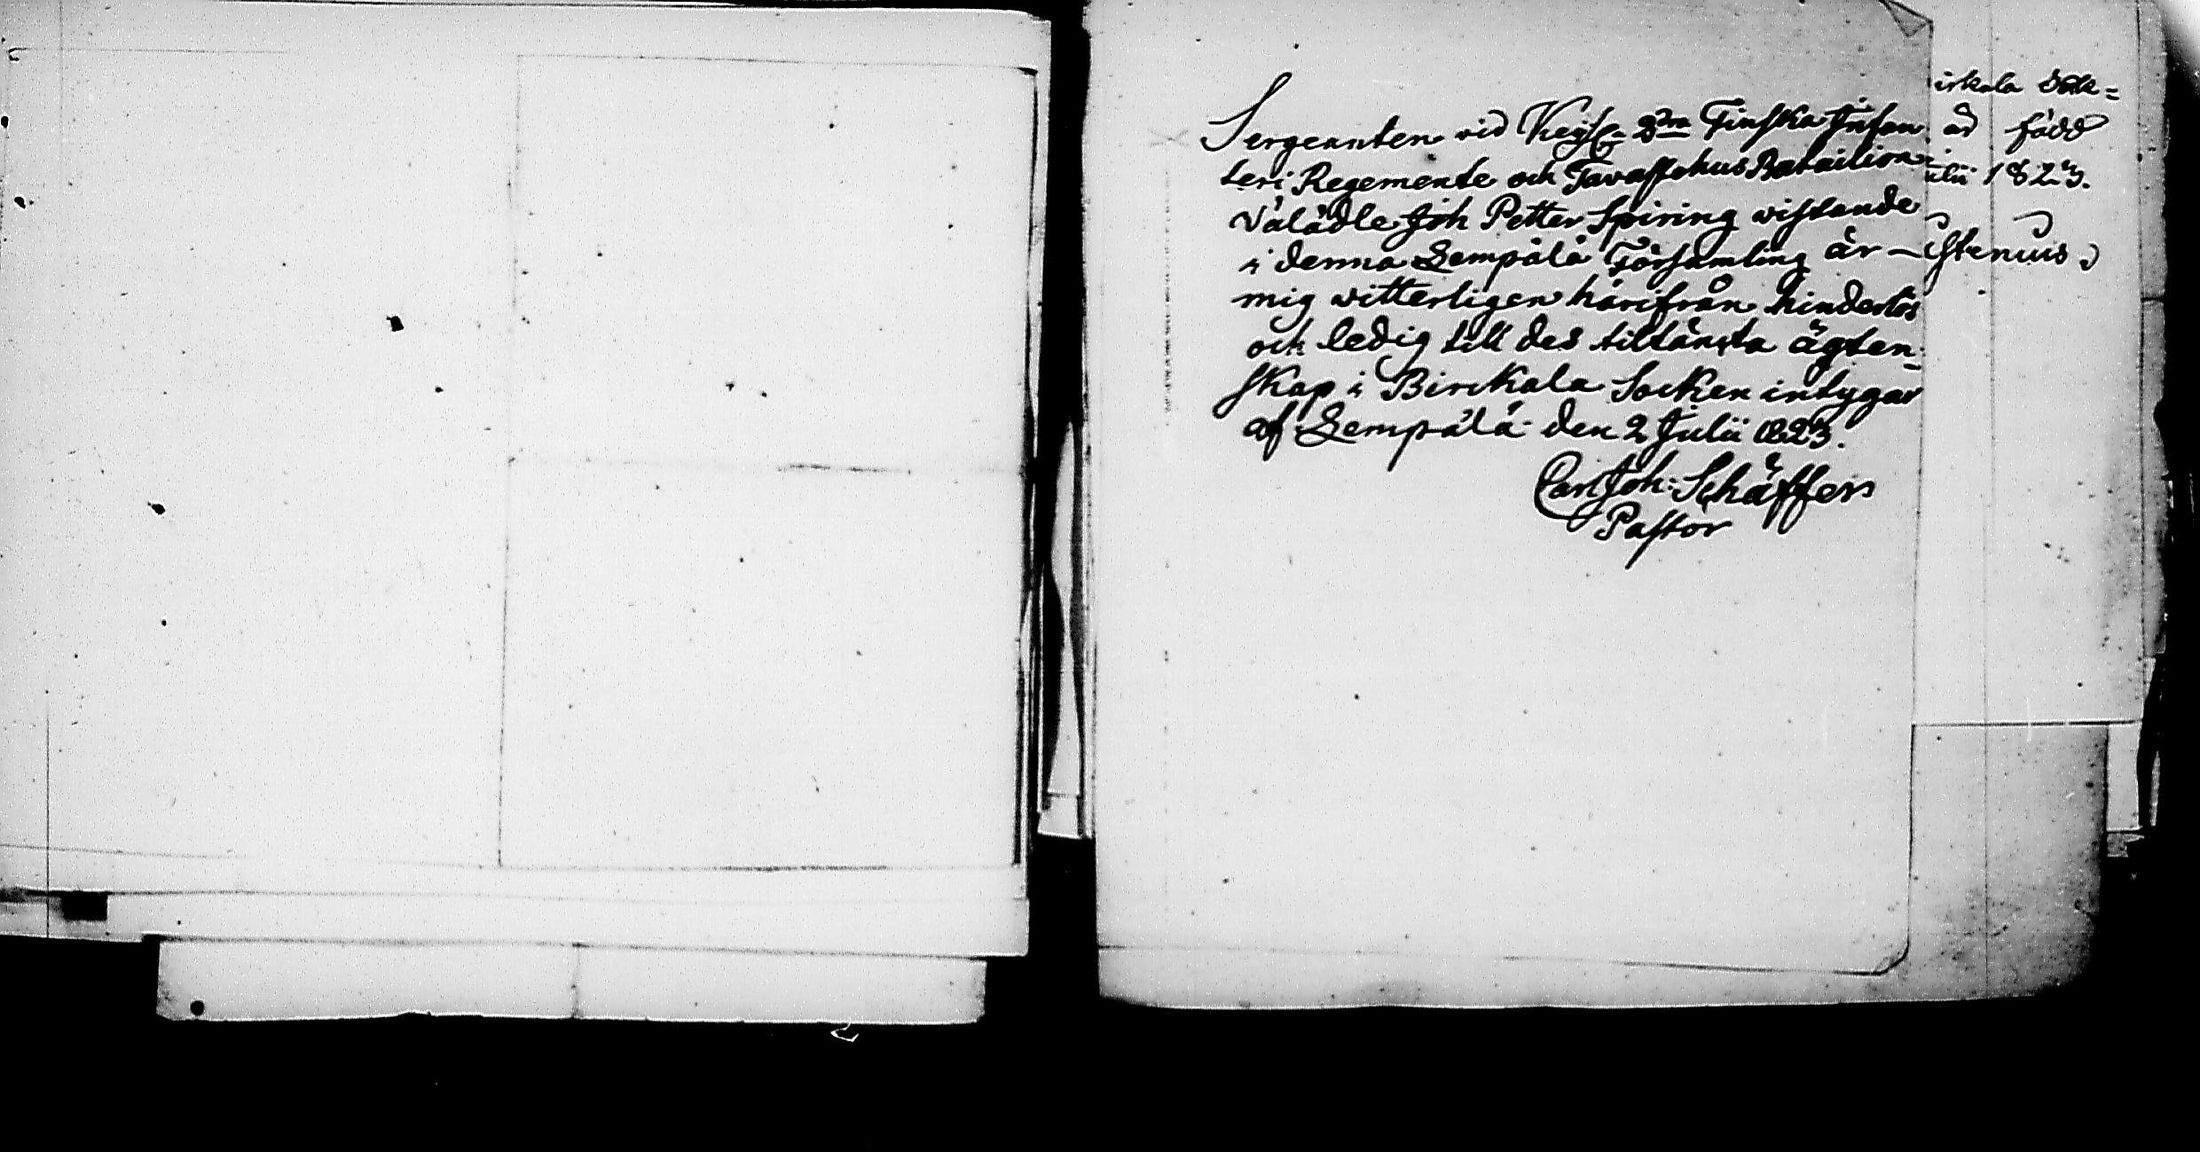 Sergeanten vid Kejs: 2dra Finska Infan
teri Regemente och Tavastehus Batailion
Välädle Joh Petter Spiring wistande
i denna Lempälä Församling är
mig witterligen härifrån hinderlös
och ledig till des tiltänkta ägten=
skap i Birckala Socken intygar
af Lempälä den 2 Julii 1823.
Carl Joh: Schäffer
Pastor
irkala
ad född
ulii 1823.